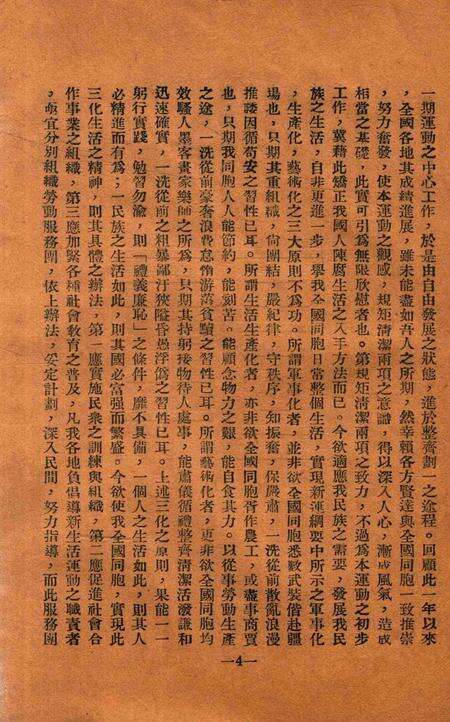 一期運動之中心工作，於是由自由發展之狀態，進於整齊劃一之途程。回顧此一年以來
，全國各地其成績進展，雖未能盡如吾人之所期，然幸賴各方賢達與全國同胞一致推崇
，努力奮發，使本運動之觀感，規矩清潔兩項之意識，得以深入人心，漸成風氣，造成
相當之基礎，此實可引爲無限欣慰者也。第規矩清潔兩項之致力，不過爲本運動之初步
工作，冀藉此矯正我國人陳腐生活之入手方法而已。今欲適應我民族之需要，發展我民
族之生活，自非更進一步，舉我全國同胞日常整個生活，實現新運綱要中所示之軍事化
，生產化，藝術化之三大原則不爲功。所謂軍事化者，並非欲全國同胞悉數武裝偕赴疆
場也，只期其重組織，尙團結，嚴紀律，守秩序，知振奮，保嚴肅，一洗從前散亂浪漫
推諉因循苟安之習性已耳。所謂生活生產化者，亦非欲全國同胞胥作農工，或盡事商賈
也，只期我同胞人人能節約，能刻苦。能顧念物力之艱，能自食其力。以從事勞動生產
之途，一洗從前豪奢浪費怠惰游蕩貪黷之習性已耳。所謂藝術化者，更非欲全國同胞均
效騷人墨客畫家樂師之所爲，只期其持躬接物待人處事，能肅儀循禮整齊清潔活潑謙和
迅速確實，一洗從前之粗暴鄙汙狹隘昏愚浮僞之習性已耳。上述三化之原則，果能一一
躬行實踐，勉習勿渝，則「禮義廉恥」之條件，靡不具備，一個人之生活如此，則其人
必精進而有爲；一民族之生活如此，則其國必富强而繁盛。今欲使我全國同胞，實現此
三化生活之精神，則其具體之辦法，第一應實施民衆之訓練與組織，第二應促進社會合
作事業之組織，第三應加緊各種社會敎育之普及，凡我各地負倡導新生活運動之職責者
，亟宜分別組織勞動服務團，依上辦法，妥定計劃，深入民間，努力指導，而此服務團
—4—